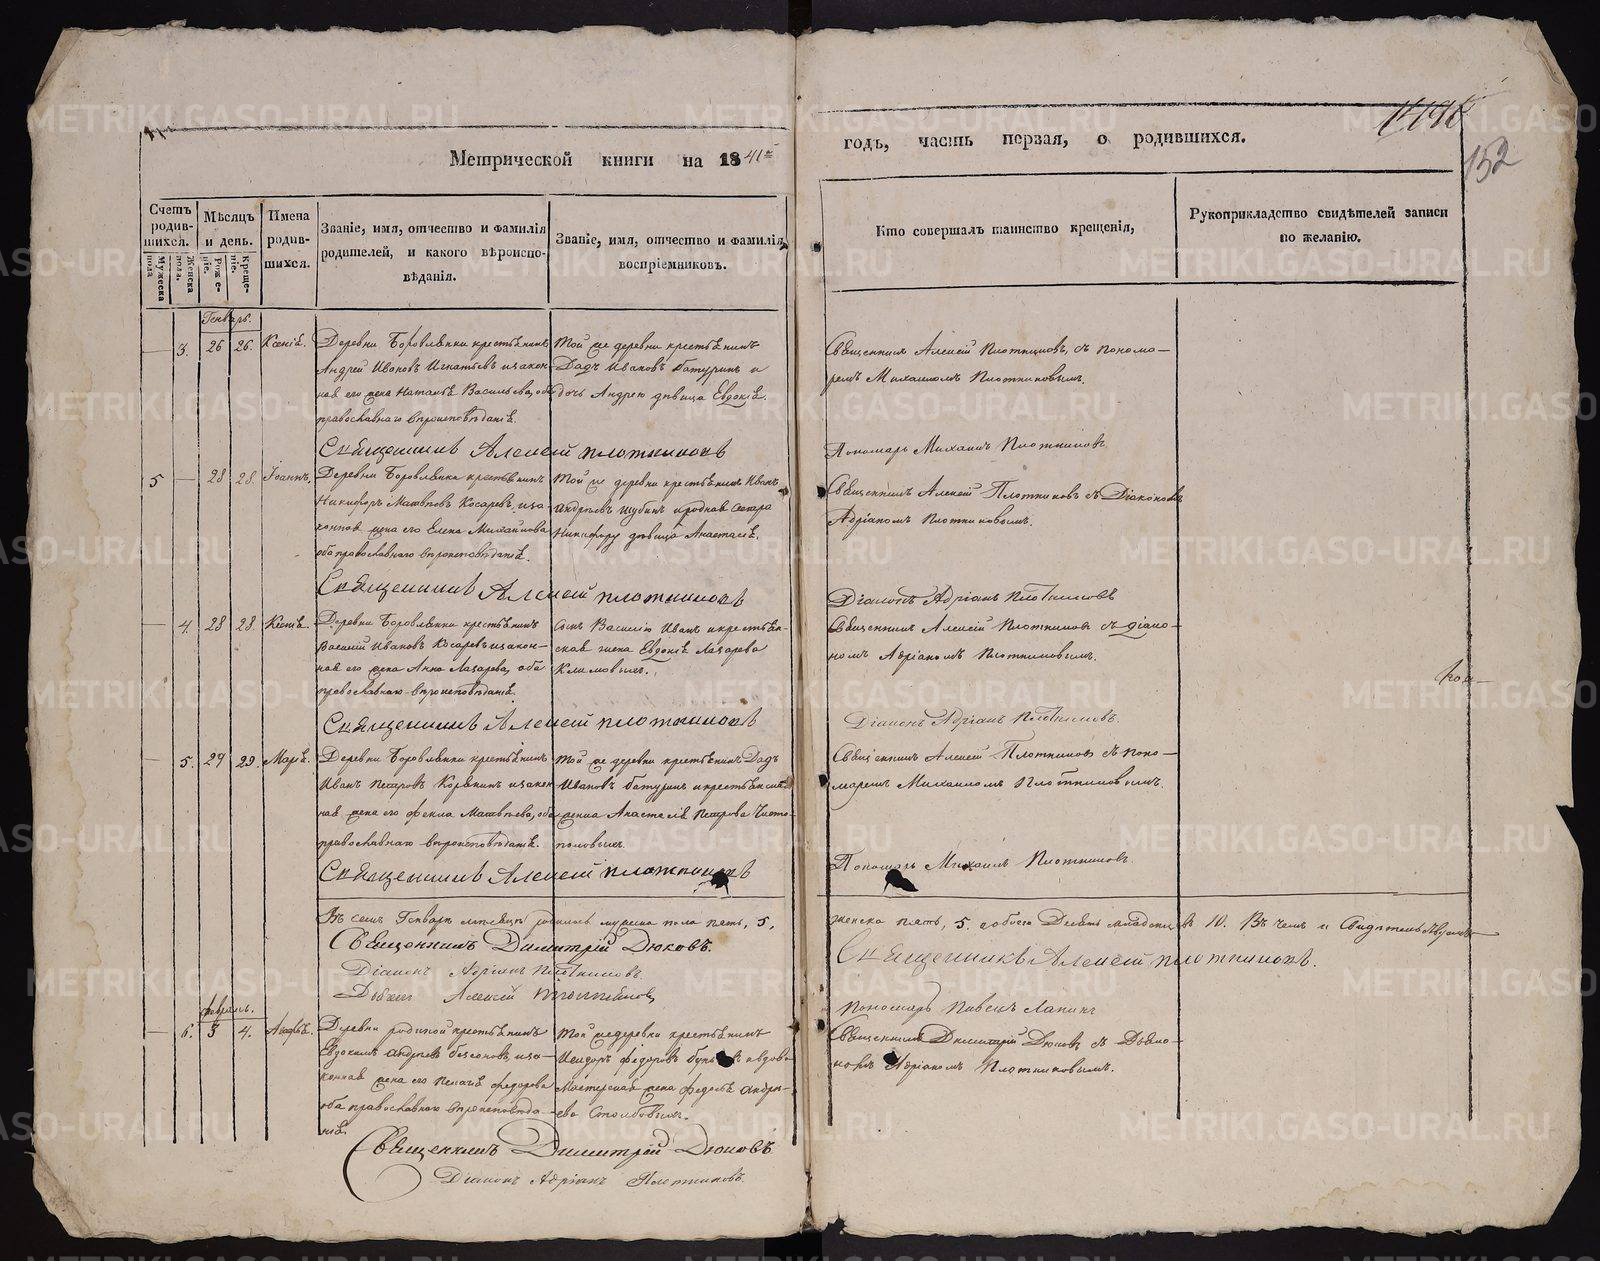 Метрической книги на 1841й
годъ, часть первая, о родившихся.
152
Счетъ родившихся.
Мужеска пола
Женска пола.
Мѣсяцъ и день.
Рожденіе.
Крещеніе.
Имена родившихся.
Званіе, имя, отчество и фамилія родителей, и какого вѣроисповѣданія.
Званіе, имя, отчество и фамилія воспріемниковъ.
Кто совершалъ таинство крещенія,
Рукоприкладство свидѣтелей записи по желанію.
Генварь.
— 3. 26 26. Ксенія.
Деревни Боровлянки крестьянинъ
Андрей Ивановъ Игнатьевъ и закон-
ная его жена Наталья Васильева, оба
православнаго вѣроисповѣданія.
Той же деревни крестьянинъ
Ивановъ Батуринъ и
дочь Андрею дѣвица Евдокія.
Священникъ Алексей Плотниковъ, съ понома-
ремъ Михаиломъ Плотниковымъ.
Священникъ Алексей Плотниковъ
Пономарь Михаилъ Плотниковъ
5 — 28 28. Іоаннъ.
Деревни Боровлянки крестьянинъ
Никифоръ Матвѣевъ Косаревъ, и за-
конная жена его Елена Михайлова
оба православнаго вѣроисповѣданія.
Той же деревни крестьянинъ Иванъ
Андреевъ Шубинъ и родная сестра
Никифору дѣвица Анастасія.
Священникъ Алексей Плотниковъ съ Діакономъ
Адріаномъ Плотниковымъ.
Священникъ Алексей Плотниковъ
Діаконъ Адріанъ Плотниковъ
— 4. 28 28. Ксенія.
Деревни Боровлянки крестьянинъ
Василій Ивановъ Косаревъ и закон-
ная его жена Анна Лазарева, оба
православнаго вѣроисповѣданія.
Сынъ Василію Иванъ и крестьян-
ская жена Евдокія Лазарева
Климовыхъ.
Священникъ Алексей Плотниковъ съ діако-
номъ Адріаномъ Плотниковымъ.
Священникъ Алексей Плотниковъ
Діаконъ Адріанъ Плотниковъ.
— 5. 29 29. Марія.
Деревни Боровлянки крестьянинъ
Иванъ Петровъ Корякинъ и закон-
ная жена его Фекла Матвѣева, оба
православнаго вѣроисповѣданія.
Той же деревни крестьянинъ
Ивановъ Батуринъ и крестьянская
жена Анастасія Петрова Чисто-
половыхъ.
Священникъ Алексей Плотниковъ съ поно-
маремъ Михаиломъ Плотниковымъ.
Священникъ Алексей Плотниковъ
Пономарь Михаилъ Плотниковъ.
Въ семъ Генварѣ мѣсяцѣ родилось мужска пола пять, 5,
женска пять, 5. обоего Десять младенцевъ 10. Въ чемъ и Свидѣтельствуемъ
Священникъ Димитрій Дюковъ.
Священникъ Алексей Плотниковъ.
Діаконъ Адріанъ Плотниковъ.
Алексей
Пономарь Павелъ Лапинъ
Февраль.
— 6. 3 4. Агафья.
Деревни крестьянинъ
Евдокимъ Андреевъ и за-
конная жена его Пелагія Федорова
оба православнаго вѣроисповѣда-
нія.
Той же деревни крестьянинъ
Федоровъ
жена Андре-
ева Столбовыхъ.
Священникъ Димитрій Дюковъ съ Діако-
номъ Адріаномъ Плотниковымъ.
Священникъ Димитрій Дюковъ
Діаконъ Адріанъ Плотниковъ.
METRIKI.GASO-URAL.RU